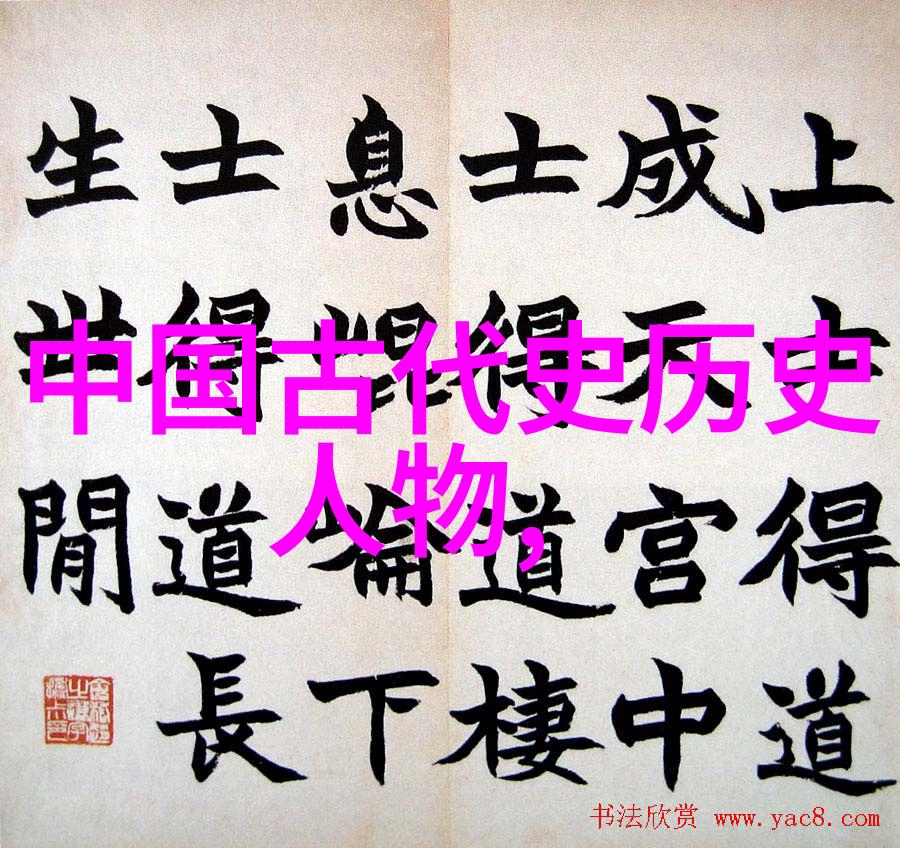 上士得道
成天宫中
士得道棲
息崐崘下
士得道長
生世閒
中国古代史历史
人物,
书法欣赏 www.yac8.com